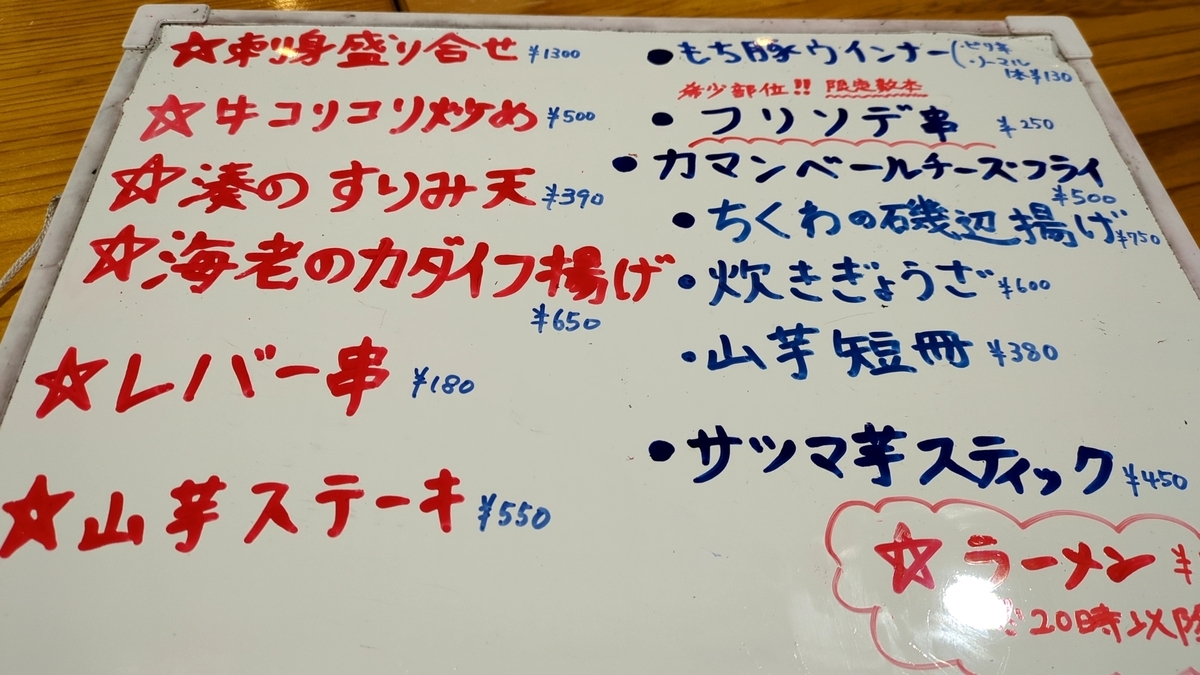 ☆刺身盛り合せ ¥1300
☆牛コリコリ炒め ¥500
☆湊のすりみ天 ¥390
☆海老のカダイフ揚げ
¥650
☆レバー串 ¥180
☆山芋ステーキ ¥550
●もち豚ウインナー(・ピリ辛
・ノーマル
1本¥130
希少部位!! 限定数本
●フリソデ串 ¥250
●カマンベールチーズフライ
¥500
●ちくわの磯辺揚げ ¥750
●炊きぎょうざ ¥600
・山芋短冊 ¥380
●サツマ芋スティック ¥450
☆ラーメン ¥
20時以降